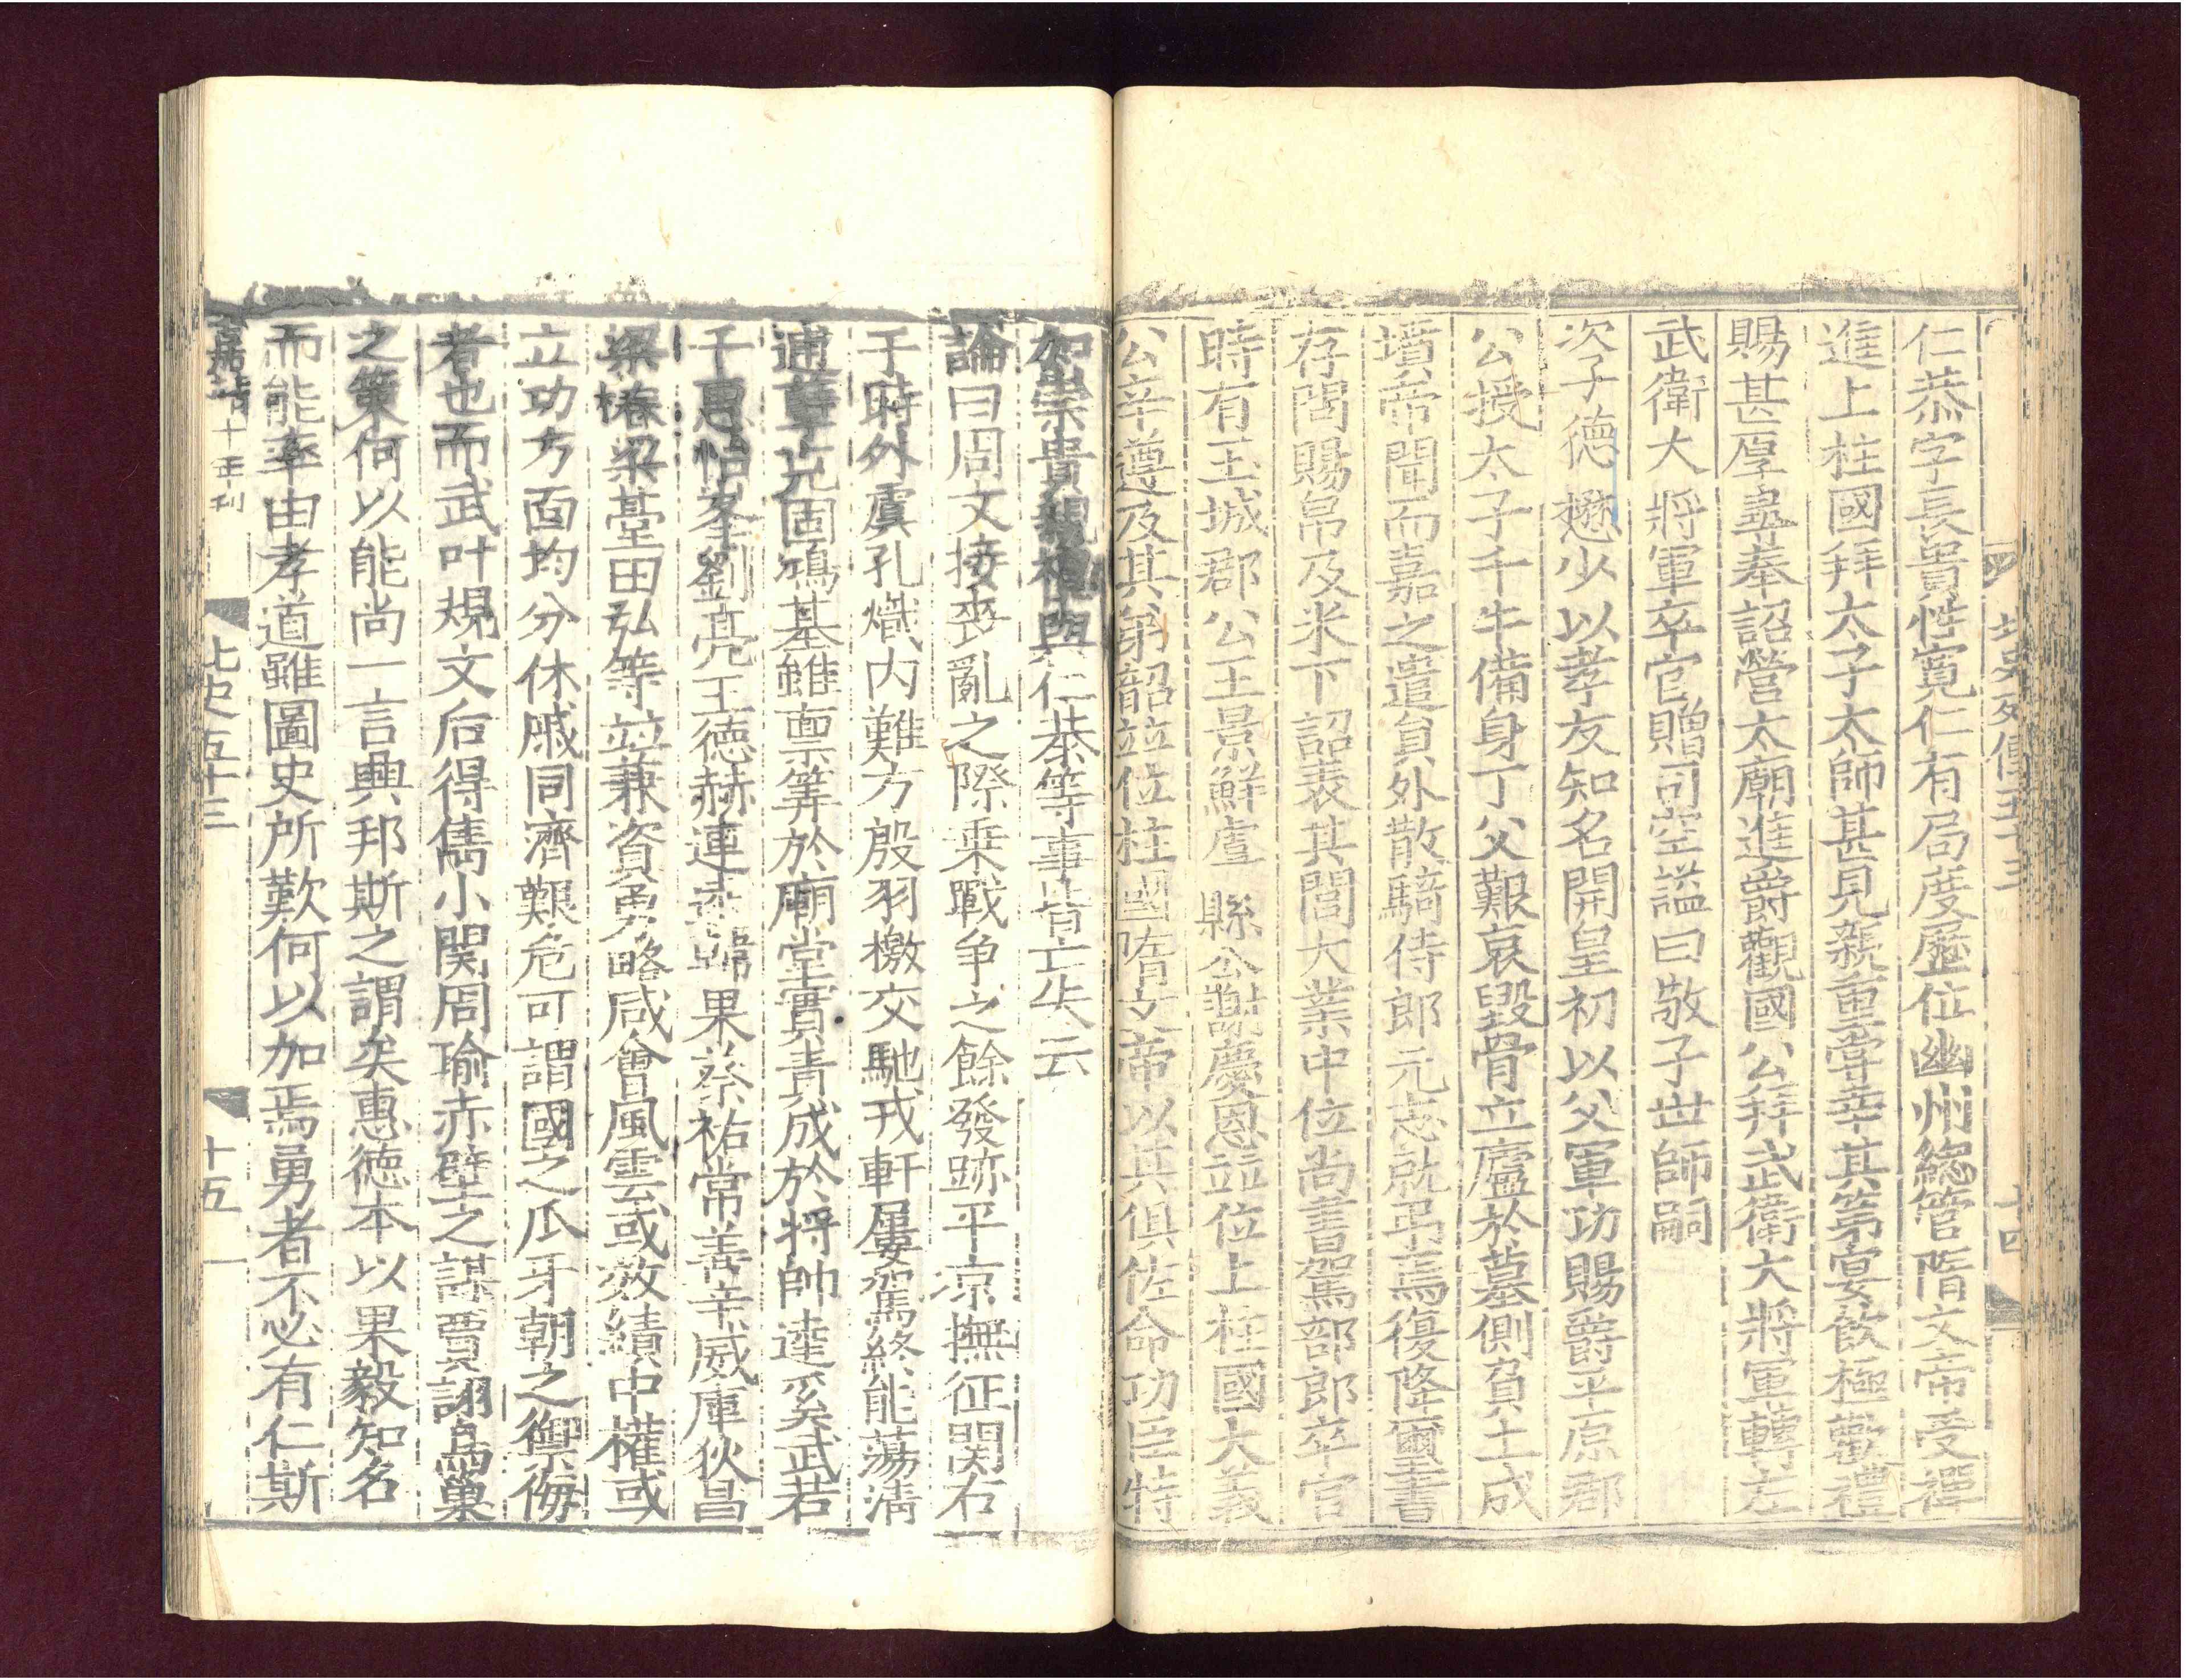 北史列傳五十三 十四
仁恭字長貴性寬仁有局度歷位幽州緫管隋文帝受禪
進上柱國拜太子太師甚見親重嘗幸其第宴飲極歡禮
賜甚厚尋奉詔營太廟進爵觀國公拜武衛大將軍轉左
武衛大將軍卒官贈司空謚曰敬子世師嗣
次子德懋少以孝友知名開皇初以父軍功賜爵平原郡
公授太子千牛備身丁父艱哀毀骨立廬於墓側負土成
墳帝聞而嘉之遣貟外散騎侍郎元志就弔焉復降璽書
存問賜帛及米下詔表其閭大業中位尚書駕部郎卒官
時有玉城郡公王景鮮虞縣公謝慶恩竝位上柱國大義
公辛遵及其弟韶竝位柱國隋文帝以其俱佐命功臣特
加崇貴親禮與仁恭等事皆亡失云
論曰周文接喪亂之際乗戰争之餘發跡平凉撫征関右
于時外虞孔熾内難方殷羽檄交馳戎軒屢駕終能蕩清
逋孽克固鴻基雖禀筭於廟堂實責成於將帥逹奚武若
干惠怡峯劉亮王德赫連逹韓果蔡祐常善辛威庫狄昌
梁椿梁臺田弘等竝兼資勇略咸會風雲或效績中權或
立功方面均分休戚同濟艱危可謂國之爪牙朝之禦侮
者也而武叶規文后得儁小関周瑜赤壁之謀賈詡烏巢
之策何以能尚一言興邦斯之謂矣惠德本以果毅知名
而能率由孝道雖圖史所歎何以加焉勇者不必有仁斯
嘉靖十年刊 北史五十三 十五